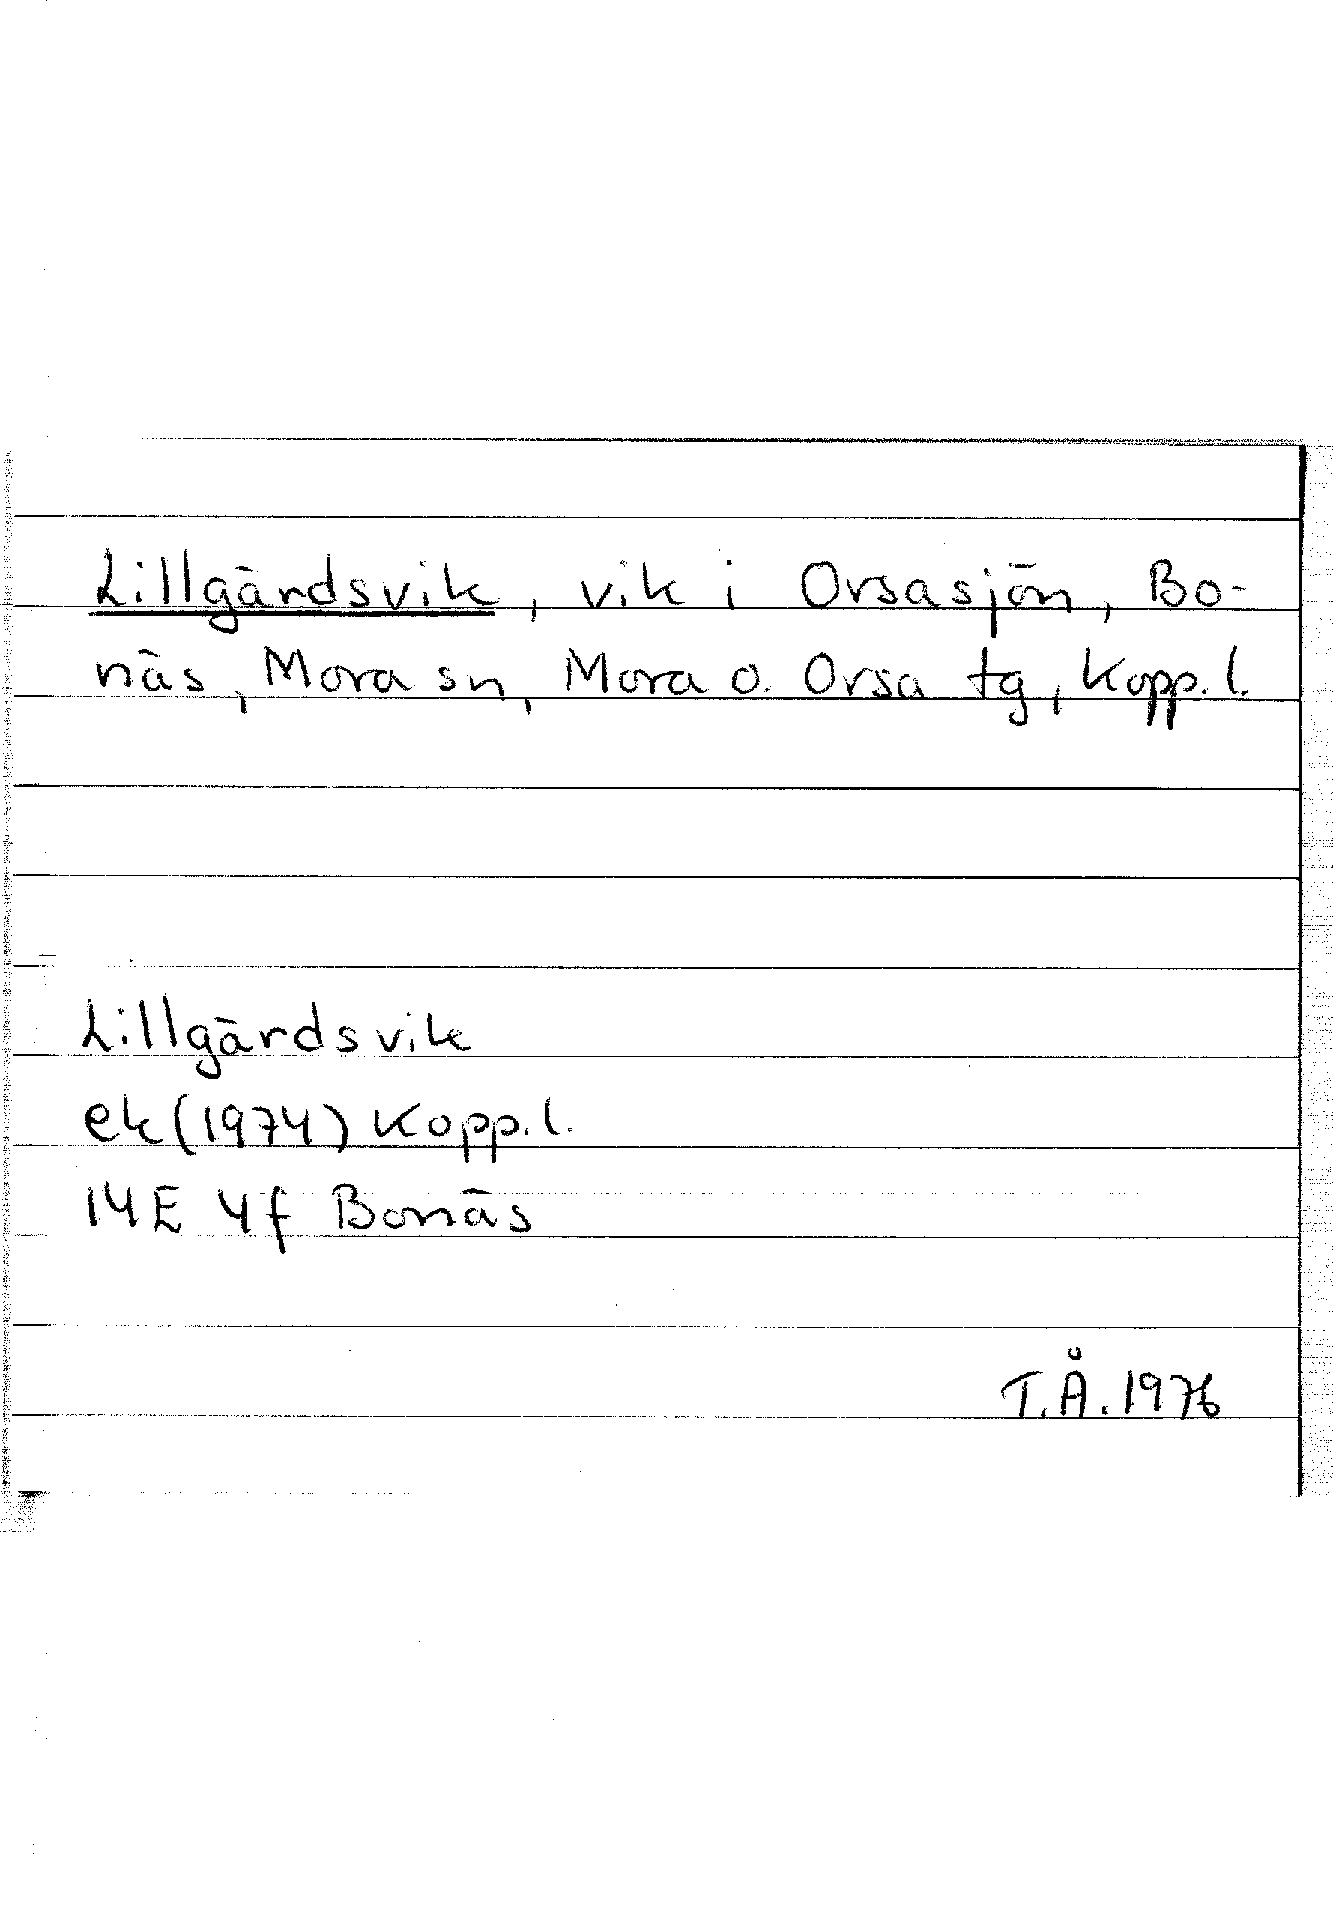 Lillgärdsvik, vik i Orsasjön, Bo-
näs, Mora sn, Mora o. Orsa tg, Kopp. l.
Lillgärdsvik
ek (1974) Kopp. l.
14E 4f Bonäs
T.Å. 1976